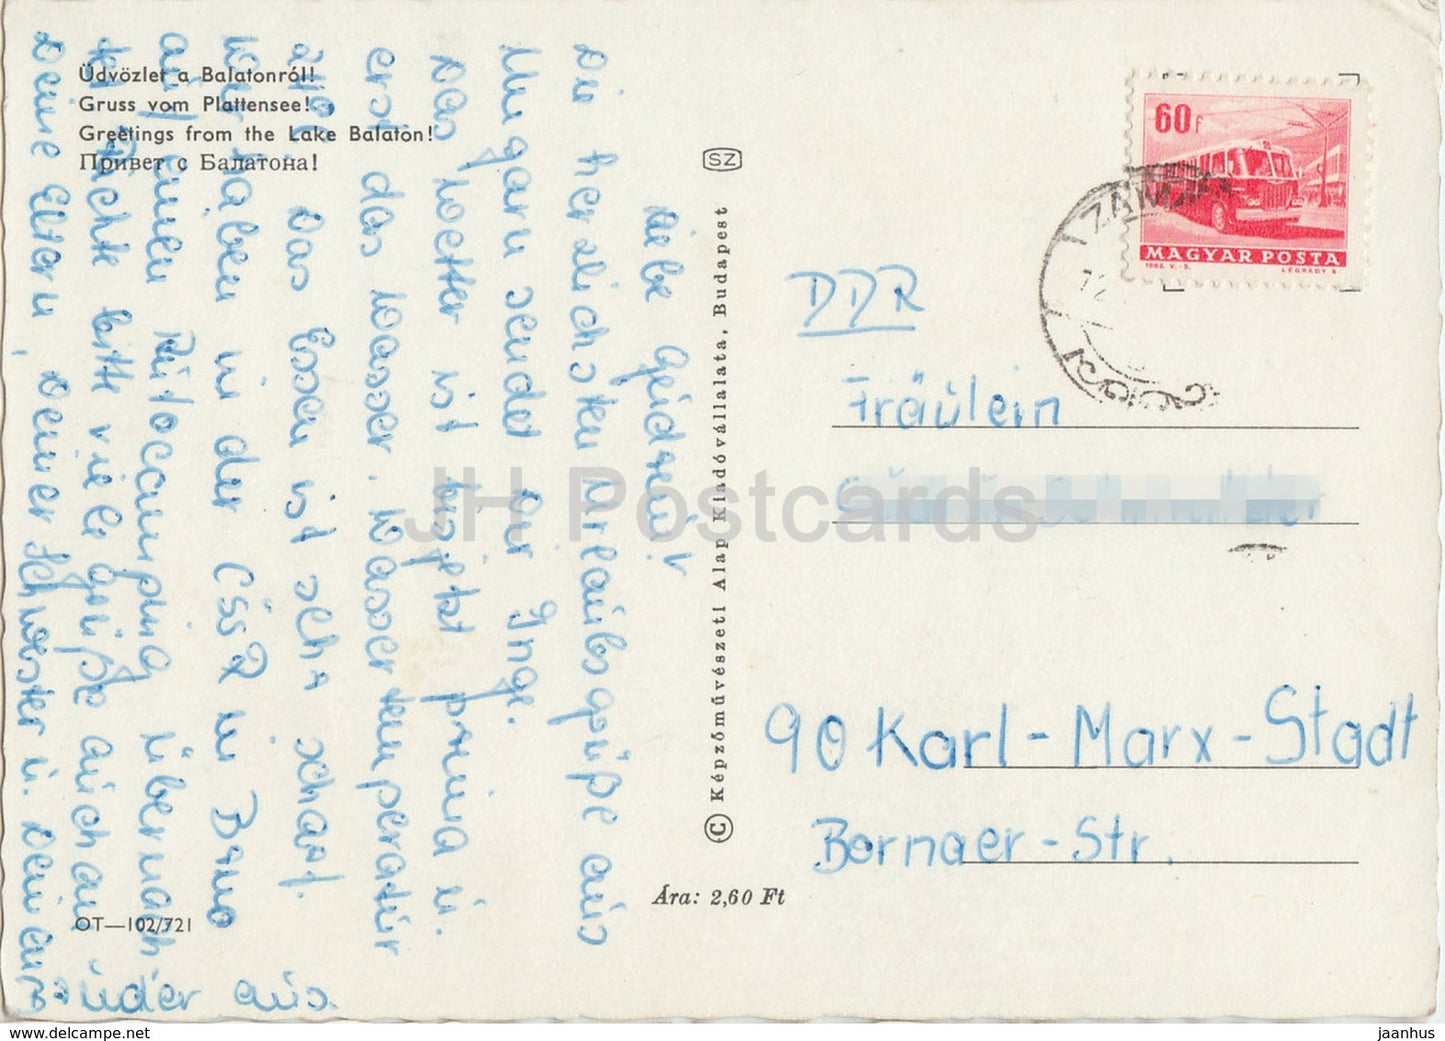 Üdvözlet a Balatonról!
Gruss vom Plattensee!
Greetings from the Lake Balaton!
Привет с Балатона!
Die herzlichsten Urlaubsgrüße aus
Ungarn sendet dir Inge.
Das Wetter ist bisjetzt prima u.
erst das Wasser. Wassertemperatür
Das Essen ist sehr scharf.
Wir haben in der ČSSR in Brno
auf einen Autocamping übernach-
tet. Richte bitte viele grüße auch an
Deine Eltern, Deiner Schwester u. Deinem
Brüder aus.
OT—102/721
SZ
© Képzőművészeti Alap Kiadóvállalata, Budapest
Ára: 2,60 Ft
60f
MAGYAR POSTA
1963. V.-S.
LÉGRÁDY S.
DDR
Fräulein
90 Karl-Marx-Stadt
Bornaer-Str.
JH Postcards
www.delcampe.net
jaanhus